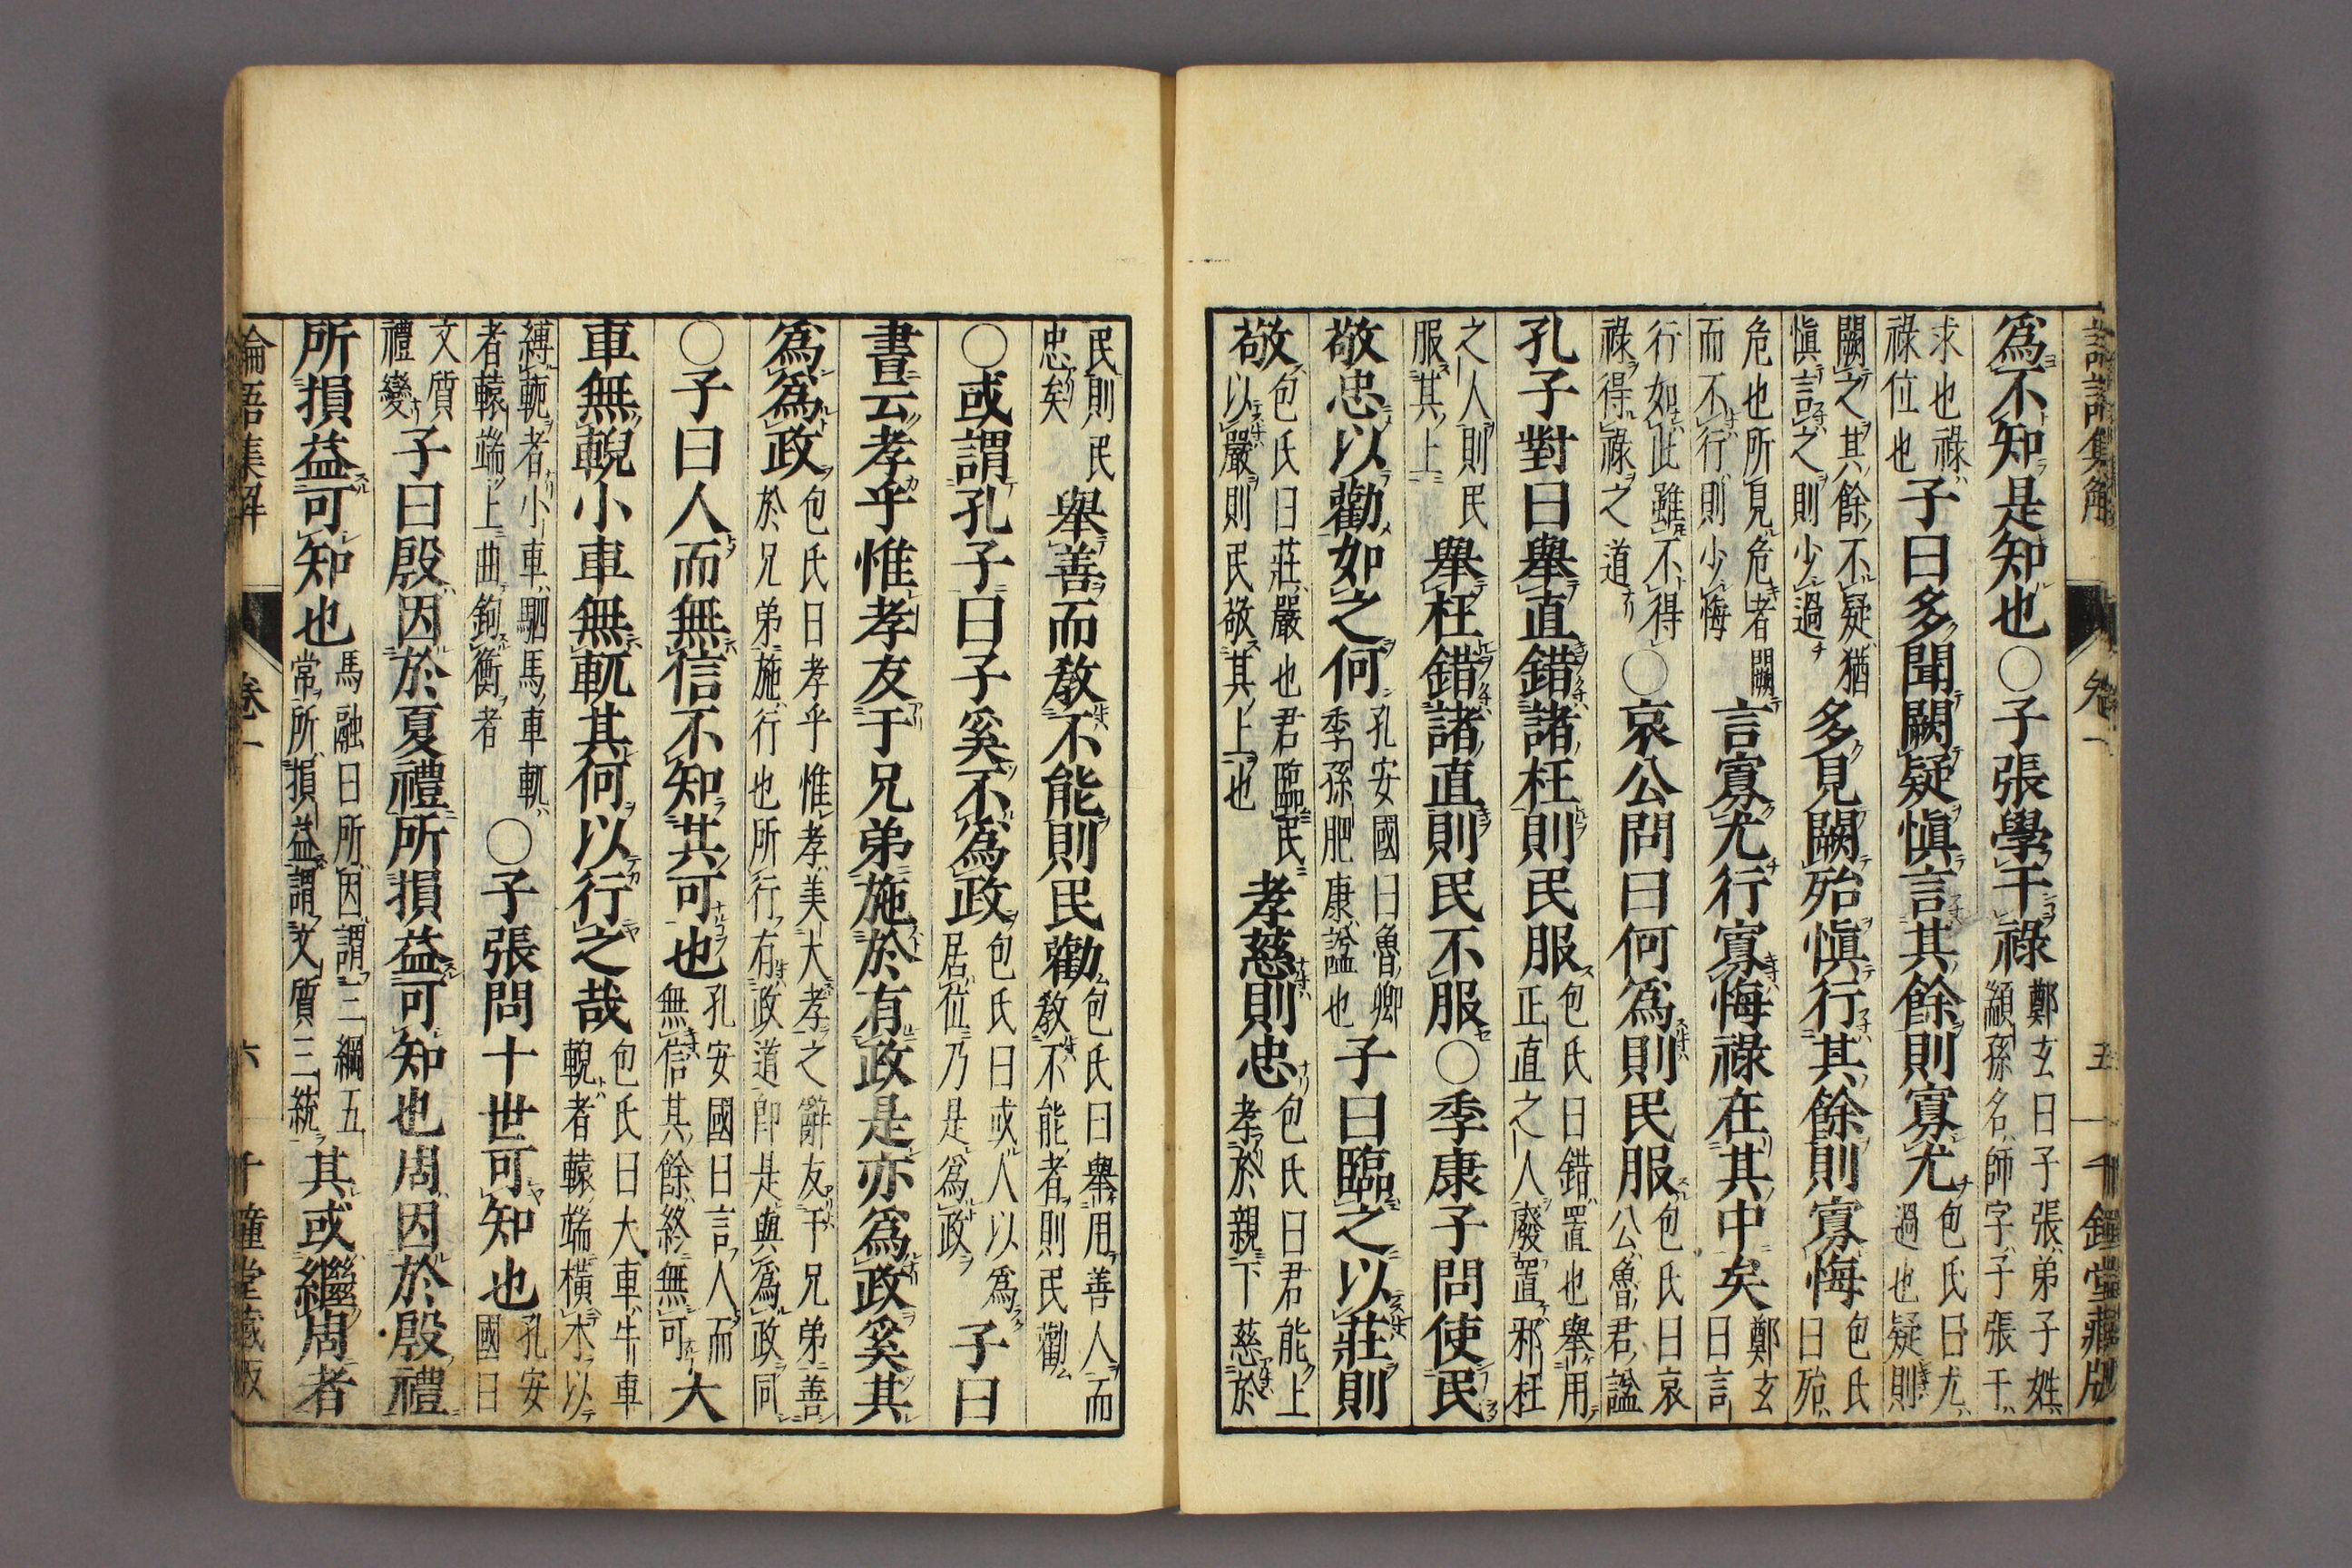 論語集解 卷一 五 千鍾堂藏版
爲不知是知也○子張學干祿鄭玄曰子張弟子姓顓孫名師字子張干
求也祿祿位也子曰多聞闕疑愼言其餘則寡尤包氏曰尤過也疑則
闕之其餘不疑猶愼言之則少過多見闕殆愼行其餘則寡悔包氏曰殆
危也所見危者闕而不行則少悔言寡尤行寡悔祿在其中矣鄭玄曰言
行如此雖不得祿得祿之道○哀公問曰何爲則民服包氏曰哀公魯君謚
孔子對曰舉直錯諸枉則民服包氏曰錯置也舉用正直之人廢置邪枉
之人則民服其上舉枉錯諸直則民不服○季康子問使民
敬忠以勸如之何孔安國曰魯卿季孫肥康謚也子曰臨之以莊則
敬包氏曰莊嚴也君臨民以嚴則民敬其上也孝慈則忠包氏曰君能上孝於親下慈於
民則民忠矣舉善而敎不能則民勸包氏曰舉用善人而敎不能者則民勸
○或謂孔子曰子奚不爲政包氏曰或人以爲居位乃是爲政子曰
書云孝乎惟孝友于兄弟施於有政是亦爲政奚其
爲爲政包氏曰孝乎惟孝美大孝之辭友于兄弟善於兄弟施行也所行有政道卽是與爲政同
○子曰人而無信不知其可也孔安國曰言人而無信其餘終無可大
車無輗小車無軏其何以行之哉包氏曰大車牛車輗者轅端橫木以
縛軛者小車駟馬車軏者轅端上曲鉤衡者○子張問十世可知也孔安國曰
文質禮變子曰殷因於夏禮所損益可知也周因於殷禮
所損益可知也馬融曰所因謂三綱五常所損益謂文質三統其或繼周者
論語集解 卷一 六 千鍾堂藏版